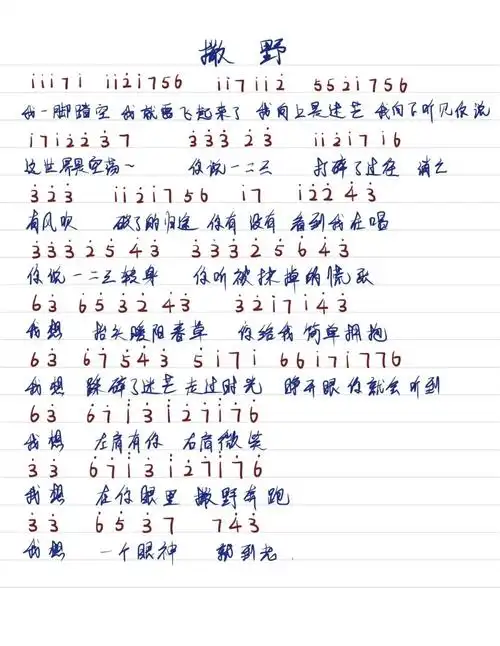 撒野
i̇i̇i̇7i̇ i̇i̇2̇i̇756 i̇i̇7i̇i̇2̇ 552̇i̇756
我一脚踏空 我就要飞起来了 我向上是迷茫 我向下听见你说
i̇7i̇2̇2̇3̇7 3̇3̇3̇2̇3̇ i̇i̇2̇i̇7i̇6
这世界是空荡~ 你说一二三 打碎了过往 消亡
3̇2̇3̇ i̇i̇2̇i̇756 i̇7 i̇2̇2̇4̇3̇
有风吹 破了的归途 你有没有看到我在唱
3̇3̇3̇2̇5̇4̇3̇ 3̇3̇3̇2̇5̇6̇4̇3̇
你说一二三转身 你听被抹掉的慌张
63̇ 6̇5̇3̇2̇4̇3̇ 3̇2̇i̇7i̇4̇3̇
我想 抬头暖阳春草 你给我简单拥抱
63̇ 6̇7̇5̇4̇3̇ 5i̇7i̇ 66i̇7i̇776
我想 踩碎了迷茫走过时光 睁开眼你就会听到
63̇ 67i̇3̇i̇2̇7i̇i̇76
我想 左肩有你 右肩微笑
3̇3̇ 67i̇3̇i̇2̇7i̇i̇76
我想 在你眼里 撒野奔跑
3̇3̇ 6̇5̇3̇7 74̇3̇
我想 一个眼神 就到老